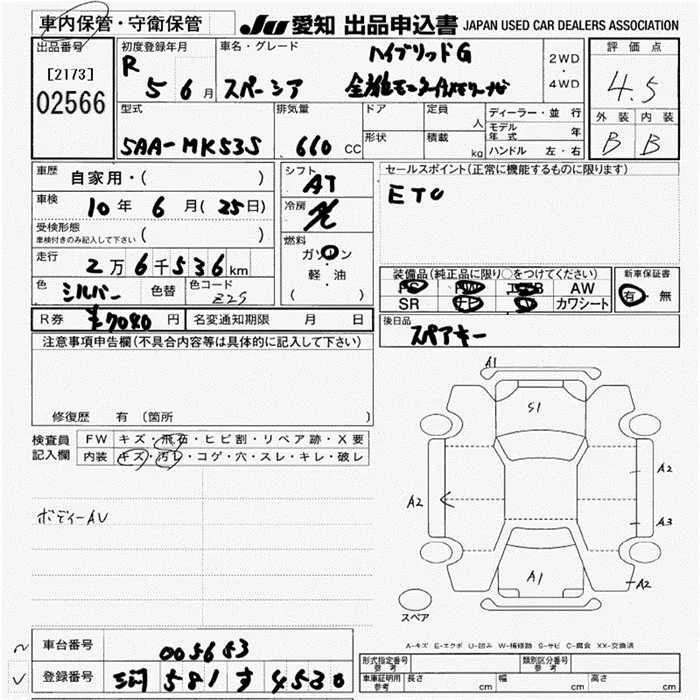 車内保管・守衛保管
JU 愛知 出品申込書 JAPAN USED CAR DEALERS ASSOCIATION
出品番号
[2173]
02566
初度登録年月
R 5 6 月
車名・グレード
ハイブリッドG
スペーシア
2WD
・
4WD
評価点
4.5
外装 内装
B B
型式
5AA-MK53S
排気量
660 CC
ドア
形状
定員 人
積載 kg
ディーラー・並行
モデル年式 年
ハンドル 左・右
車歴
自家用・( )
車検
10年 6月(25日)
受検形態
車検付きのみ記入して下さい ( )
走行
2万6千536km
色 シルバー 色替 色コード Z2S
R券 ¥7080 円 名変通知期限 月 日
シフト
AT
冷房
燃料
ガソリン
・
軽・油
( )
セールスポイント(正常に機能するものに限ります)
ETC
装備品(純正品に限り○をつけてください)
AW
SR カワシート
新車保証書
有・無
後日品
スペアキー
注意事項申告欄(不具合内容等は具体的に記入して下さい)
修復歴 有 (箇所 )
検査員
記入欄
FW キズ・飛石・ヒビ割・リペア跡・X要
内装 キズ・汚レ・コゲ・穴・スレ・キレ・破レ
ボディーAU
A1
S1
A2
A2
A3
A1
A2
スペア
A-キズ E-エクボ U-凹み W-補修跡 S-サビ C-腐食 XX-交換済
車台番号
005653
登録番号
581 す 4530
形式指定番号
参考
類別区分番号
参考
車庫証明用
参考
長さ cm 幅 cm 高さ cm